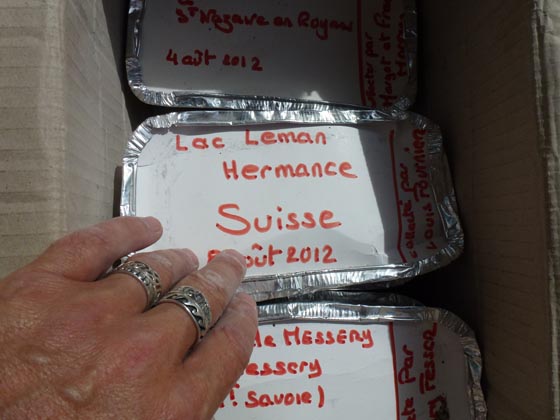 St Nazaire en Royans
4 août 2012
collecté par
Margot et
Lac Leman
Hermance
Suisse
août 2012
collecté par
Louis Fournier
de MESSERY
essery
Savoie)